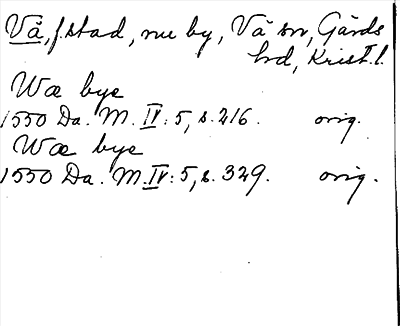 Vå, f. stad, nu by, Vå sn, Gärds
hd, Krist. l.
Wæ bye
1550 Da. M. IV: 5, s. 216. orig.
Wæ bye
1550 Da. M. IV: 5, s. 329. orig.